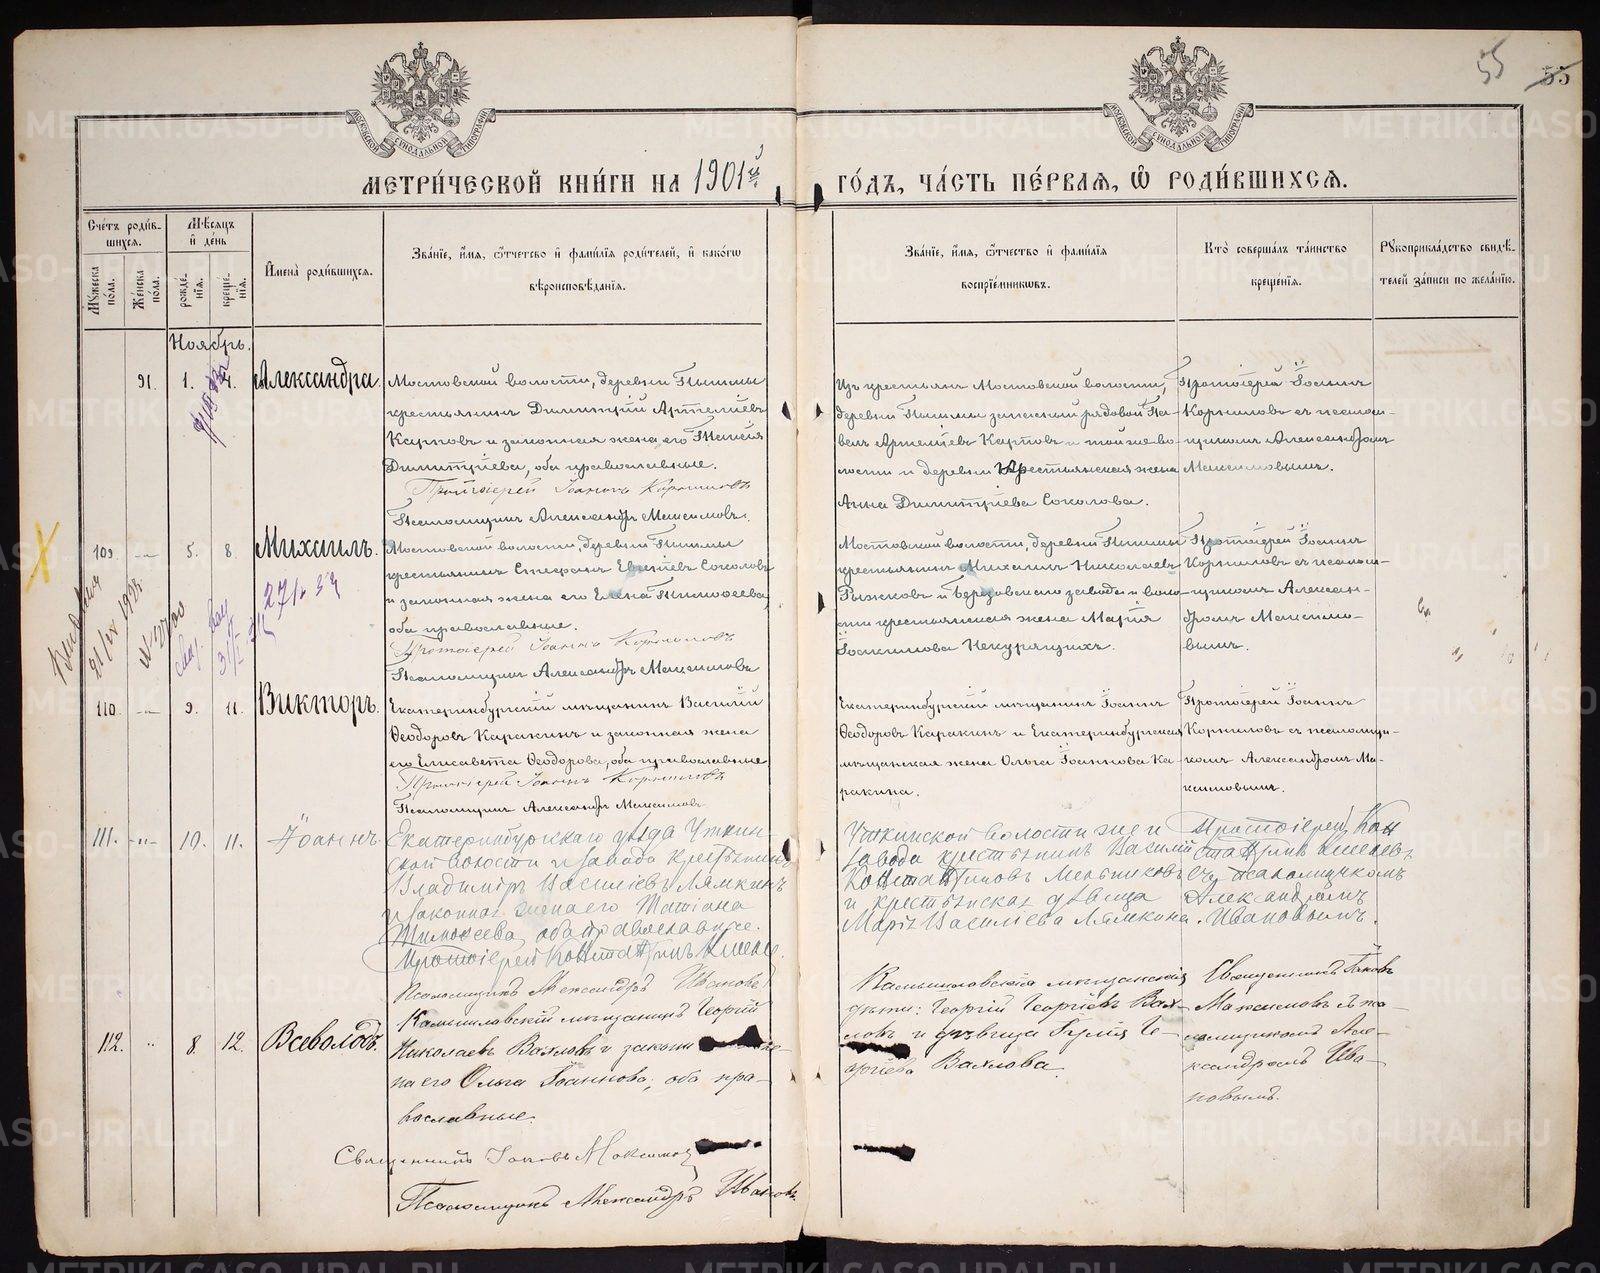 55
МОСКОВСКОЙ СѴНОДАЛЬНОЙ ТИПОГРАФІИ
МОСКОВСКОЙ СѴНОДАЛЬНОЙ ТИПОГРАФІИ
МЕТРИ́ЧЕСКОЙ КНИ́ГИ НА 1901й
ГО́ДЪ, ЧА́СТЬ ПЕ́РВАЯ, Ѽ РОДИ́ВШИХСЯ.
Сче́тъ роди́в-
шихся.
Мꙋжеска по́ла.
Же́нска по́ла.
Мѣ́сяцъ
и҆ де́нь
рожде́-
нїя.
креще́-
нїя.
И҆мена̀ роди́вшихся.
Зва́нїе, и҆́мя, ѻ҆́тчество и҆ фами́лїя роди́телей, и҆ како́гѡ
вѣроисповѣ́данїя.
Зва́нїе, и҆́мя, ѻ҆́тчество и҆ фами́лїя
воспрїе́мникѡвъ.
Кто̀ соверша́лъ та́инство
креще́нїя.
Рꙋкоприкла́дство свидѣ́-
телей за́писи по жела́нїю.
Ноябрь.
91. 1. 4. Александра.
Мостовской волости, деревни Пышмы
крестьянинъ Димитрій Артеміевъ
Карповъ и законная жена его Таисія
Димитріева, оба православные.
Протоіерей Іоаннъ Корниловъ
Псаломщикъ Александръ Максимовъ.
Изъ крестьянъ Мостовской волости,
деревни Пышмы запасный рядовой Па-
велъ Артеміевъ Карповъ и той же во-
лости и деревни крестьянская жена
Анна Димитріева Соколова.
Протоіерей Іоаннъ
Корниловъ съ псалом-
щикомъ Александромъ
Максимовымъ.
109. -"- 5. 8. Михаилъ.
27/X 37
Мостовской волости, деревни Пышмы
крестьянинъ Стефанъ Евѳиміевъ Соколовъ
и законная жена его Елена Тимоѳеева,
оба православные.
Протоіерей Іоаннъ Корниловъ
Псаломщикъ Александръ Максимовъ
Мостовской волости, деревни Пышмы
крестьянинъ Михаилъ Николаевъ
Рыжковъ и Березовскаго завода и воло-
сти крестьянская жена Марія
Іоакимова Некурящихъ.
Протоіерей Іоаннъ
Корниловъ съ псалом-
щикомъ Алексан-
дромъ Максимо-
вымъ.
110. -"- 9. 11. Викторъ.
Екатеринбургскій мѣщанинъ Василій
Ѳеодоровъ Каракинъ и законная жена
его Елисавета Ѳеодорова, оба православные
Протоіерей Іоаннъ Корниловъ
Псаломщикъ Александръ Максимовъ
Екатеринбургскій мѣщанинъ Іоаннъ
Ѳеодоровъ Каракинъ и Екатеринбургская
мѣщанская жена Ольга Іоаннова Ка-
ракина.
Протоіерей Іоаннъ
Корниловъ съ псаломщи-
комъ Александромъ Ма-
ксимовымъ.
111. -"- 10. 11. Іоаннъ.
Екатеринбургскаго уѣзда Уткин-
ской волости и завода крестьянинъ
Владиміръ Василіевъ Лямкинъ
и законная жена его Татіана
Тимоѳеева, оба православные.
Псаломщикъ Александръ Ивановъ
Уткинской волости же и
завода крестьянинъ Василій
Константиновъ Мельниковъ
и крестьянская дѣвица
Марія Василіева Лямкина.
Протоіерей Кон
съ псаломщикомъ
Александромъ
Ивановымъ.
112. " 8. 12. Всеволодъ.
Камышловскій мѣщанинъ Георгій
Николаевъ Вахловъ и законн
на его Ольга Іоаннова, оба пра-
вославные.
Священникъ Іаковъ Максимов
Псаломщикъ Александръ Ивановъ
Камышловскія мѣщанскія
дѣти: Георгій Георгіевъ Вах-
ловъ и дѣвица Ге-
оргіева Вахлова.
Священникъ Іаковъ
Максимовъ съ пса-
ломщикомъ Але-
ксандромъ Ива-
новымъ.
METRIKI.GASO-URAL.RU